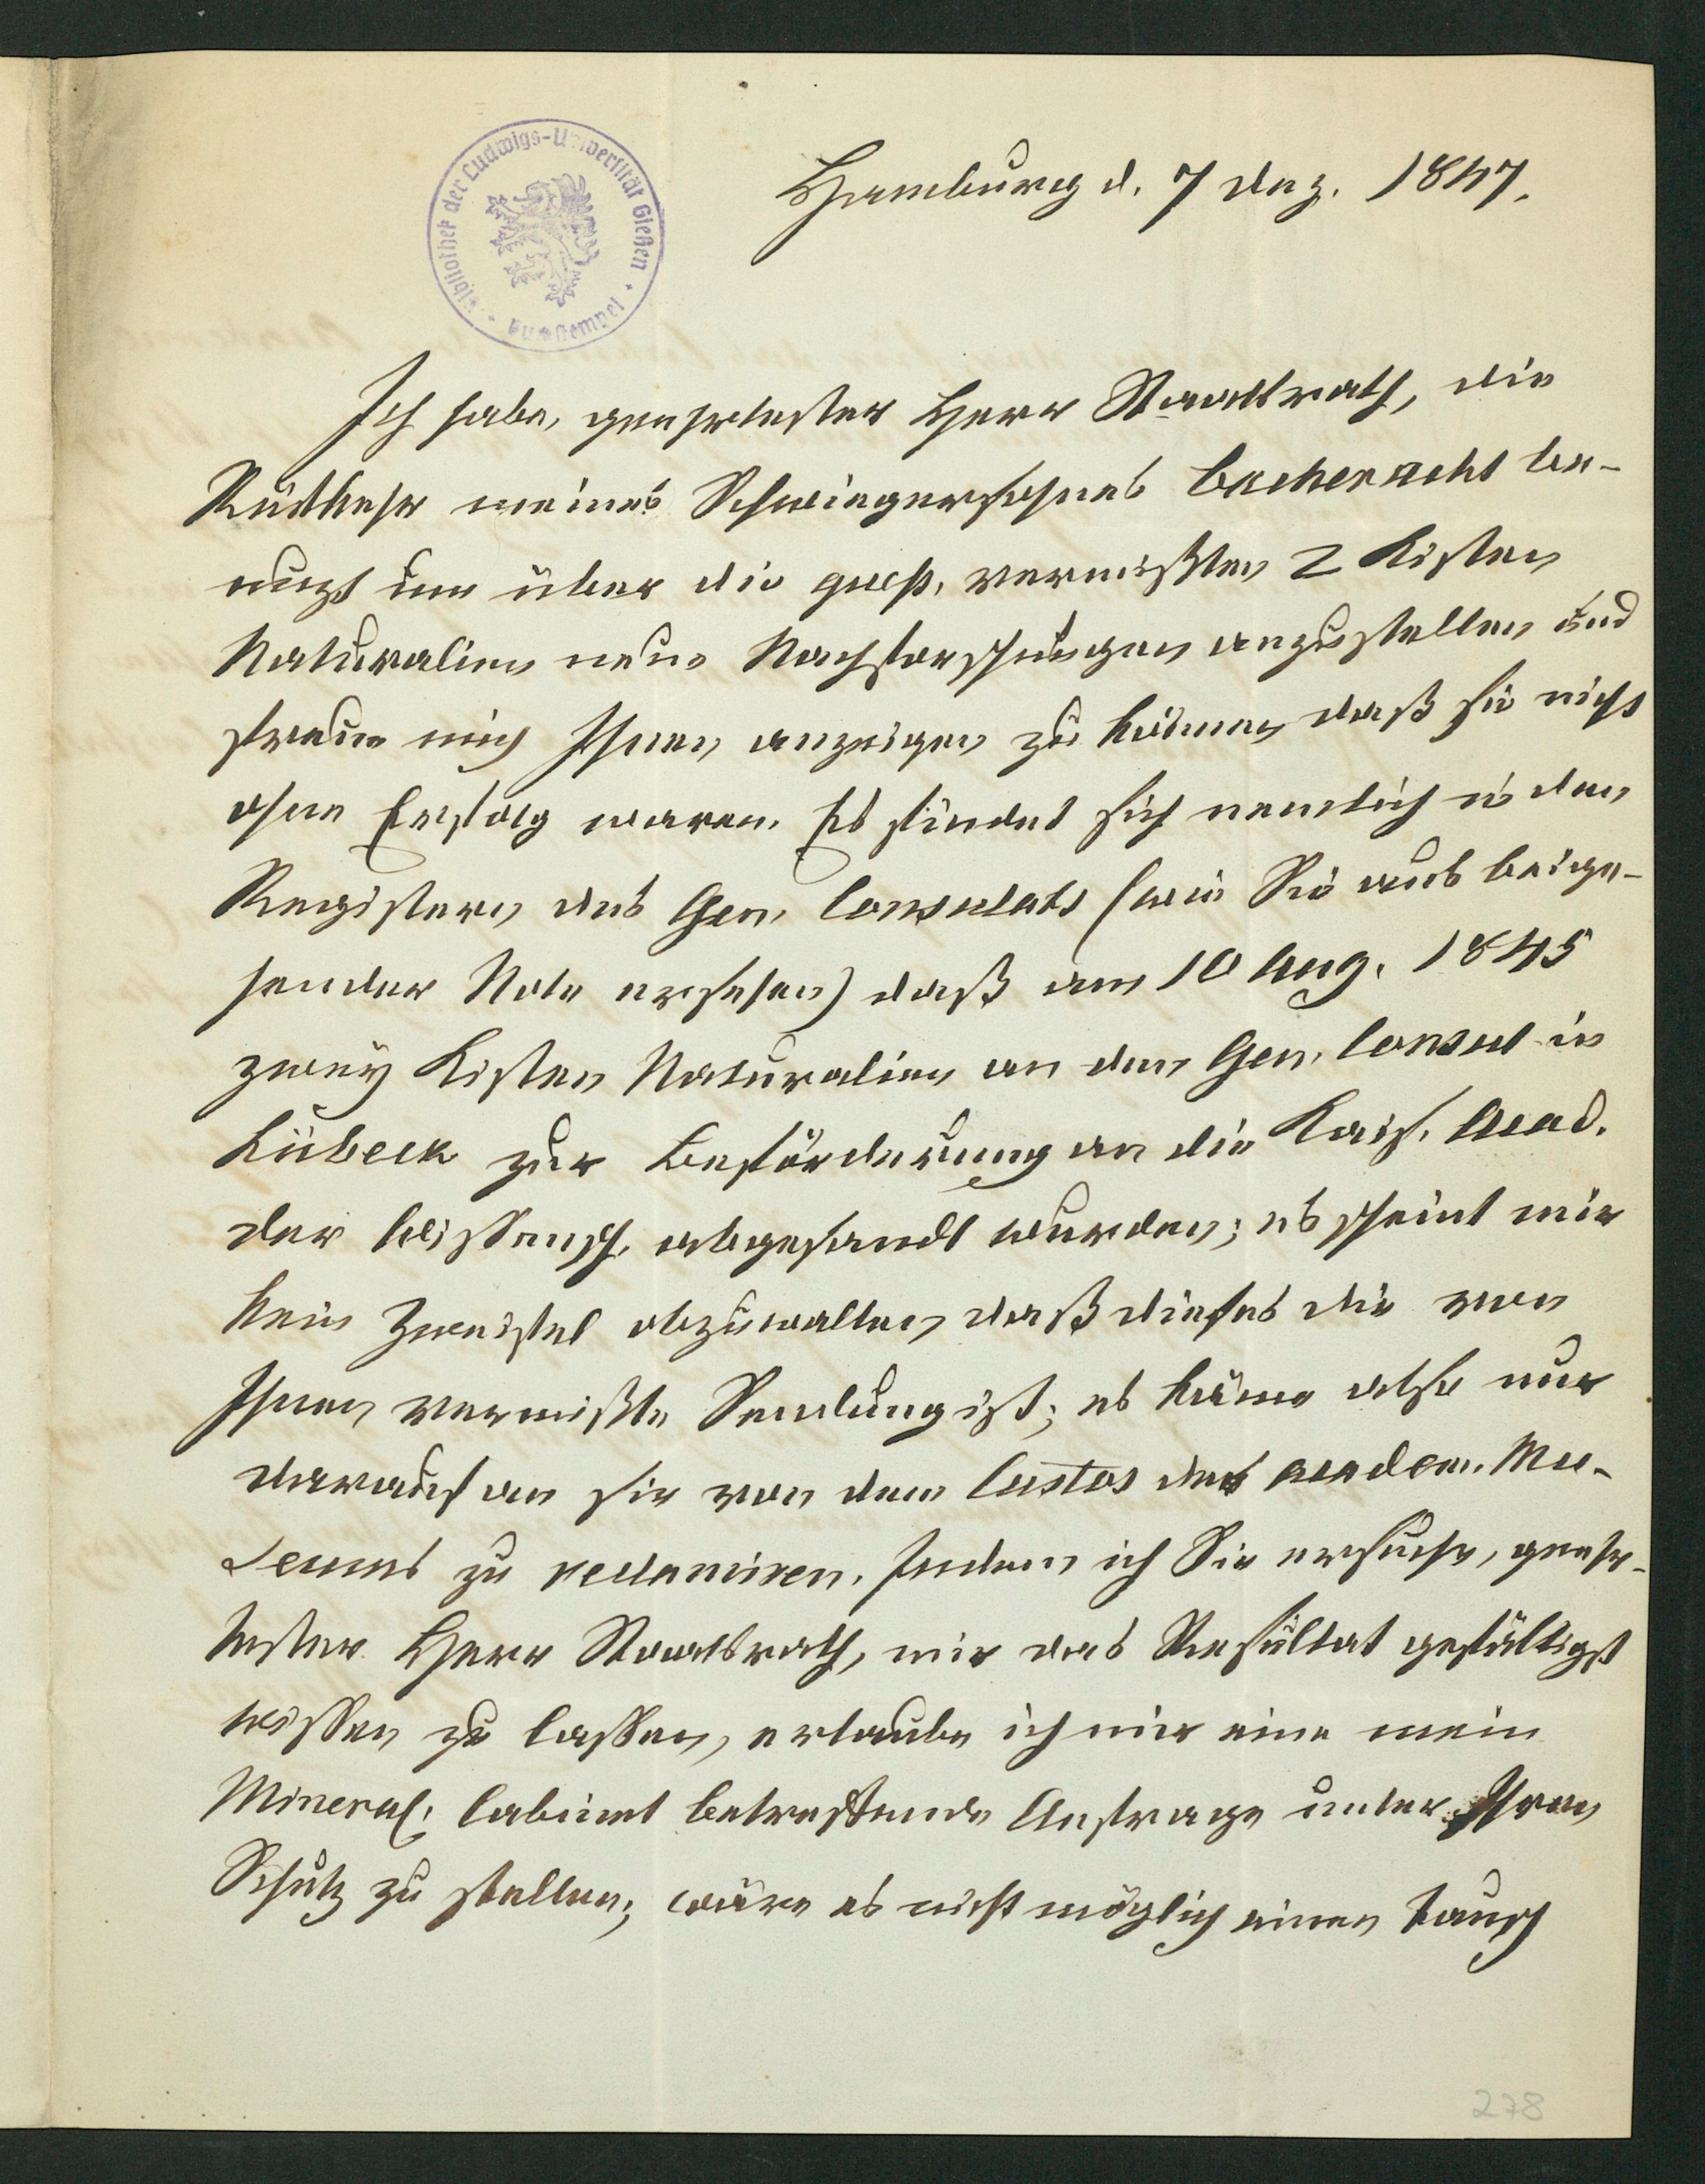 Bibliothek der Ludwigs-Universität Gießen
Hamburg d. 7 Dez. 1847.
Ich habe, geehrtester Herr Staatsrath, die
Rückkehr meines Schwiegersohnes Bacheracht be-
nuzt um über die gütigst vermißten 2 Kisten
Naturalien neue Nachforschungen anzustellen und
freue mich Ihnen anzeigen zu können daß sie nicht
ohne Erfolg waren. Es findet sich nemlich in den
Registern des Gen. Consulats (wie Sie aus beige-
hender Note ersehen) daß am 10 Aug. 1845
zwey Kisten Naturalien an den Gen. Consul in
Lübeck zur Beförderung an die Kais. Acad.
der Wissensch. abgesandt wurden; es scheint mir
kein Zweifel obzuwalten daß dieses die von
Ihnen vermißte Sendung ist; es käme also nur
darauf an sie von dem Custos des academ. Mu-
seums zu reclamiren. Indem ich Sie ersuche, geehr-
tester Herr Staatsrath, mir das Resultat gefälligst
wissen zu lassen, erlaube ich mir eine mein
Mineral. Cabinet betreffende Anfrage unter Ihren
Schutz zu stellen; wäre es nicht möglich einen Tausch
278